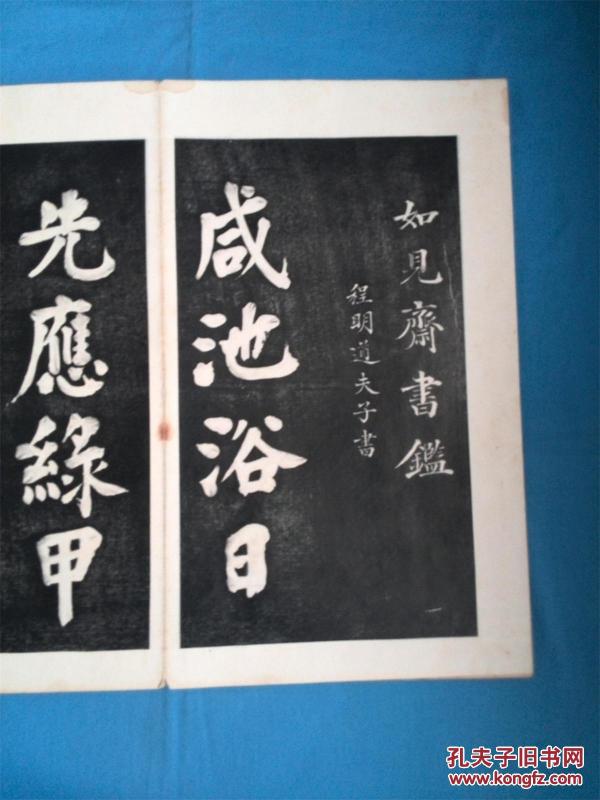 如見齋書鑑
程明道夫子書
咸池浴日
先應綠甲
一
孔夫子旧书网
www.kongfz.com